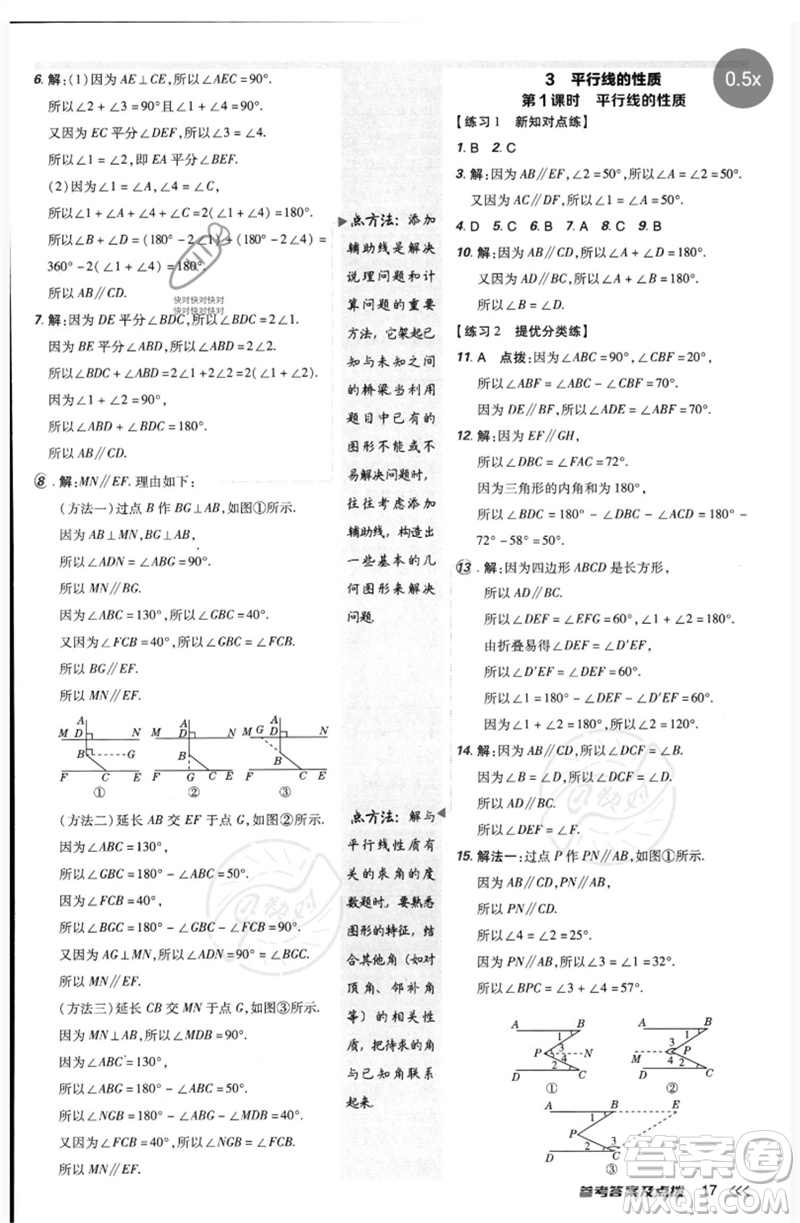 6. 解:(1)因为 AE⊥CE,所以∠AEC=90°.
所以∠2+∠3=90°,∠1+∠4=90°.
又因为 EC 平分∠DEF,所以∠3=∠4.
所以∠1=∠2,即 EA 平分∠BEF.
(2)因为∠1=∠A,∠4=∠C,
所以∠1+∠A+∠4+∠C=2(∠1+∠4)=180°.
所以∠B+∠D=(180°-2∠1)+(180°-2∠4)=
360°-2(∠1+∠4)=180°.
所以 AB∥CD.
快对快对快对
快对快对快对
7. 解:因为 DE 平分∠BDC,所以∠BDC=2∠1.
因为 BE 平分∠ABD,所以∠ABD=2∠2.
所以∠BDC+∠ABD=2∠1+2∠2=2(∠1+∠2).
因为∠1+∠2=90°,
所以∠BDC+∠ABD=180°.
所以 AB∥CD.
8. 解:MN∥EF. 理由如下:
(方法一)过点 B 作 BG⊥AB,如图①所示.
因为 AB⊥MN,BG⊥AB,
所以∠ADN=∠ABG=90°.
所以 MN∥BG.
因为∠ABC=130°,所以∠GBC=40°.
又因为∠FCB=40°,所以∠GBC=∠FCB.
所以 BG∥EF.
所以 MN∥EF.
A
M D N
B G
F C E
①
A
M D N
B
F G C E
②
A
M G D N
B
F C E
③
(方法二)延长 AB 交 EF 于点 G,如图②所示.
因为∠ABC=130°,
所以∠GBC=180°-∠ABC=50°.
因为∠FCB=40°,
所以∠BGC=180°-∠GBC-∠FCB=90°.
又因为 AG⊥MN,所以∠ADN=90°=∠BGC.
所以 MN∥EF.
(方法三)延长 CB 交 MN 于点 G,如图③所示.
因为 MN⊥AB,所以∠MDB=90°.
因为∠ABC=130°,
所以∠ABG=180°-∠ABC=50°.
所以∠NGB=180°-∠ABG-∠MDB=40°.
又因为∠FCB=40°,所以∠NGB=∠FCB.
所以 MN∥EF.
点方法:添加
辅助线是解决
说理问题和计
算问题的重要
方法,它架起已
知与未知之间
的桥梁.当利用
题目中已有的
图形不能或不
易解决问题时,
往往考虑添加
辅助线,构造出
一些基本的几
何图形来解决
问题.
点方法:解与
平行线性质有
关的求角的度
数题时,要熟悉
图形的特征,结
合其他角(如对
顶角、邻补角
等)的相关性
质,把待求的角
与已知角联系
起来.
0.5x
3 平行线的性质
第1课时 平行线的性质
【练习1 新知对点练】
1. B 2. C
3. 解:因为 AB∥EF,∠2=50°,所以∠A=∠2=50°.
又因为 AC∥DF,所以∠1=∠A=50°.
4. D 5. C 6. B 7. A 8. C 9. B
10. 解:因为 AB∥CD,所以∠A=∠1.
又因为∠A=∠D,所以∠1=∠D.
【练习2 提优分类练】
11. A 点拨:因为∠ABC=90°,∠CBF=20°,
所以∠ABF=∠ABC-∠CBF=70°.
因为 DE∥BF,所以∠ADE=∠ABF=70°.
12. 解:因为 EF∥GH,
所以∠DBC=∠FAC=72°.
因为三角形的内角和为180°,
所以∠BDC=180°-∠DBC-∠ACD=180°-
72°-58°=50°.
13. 解:因为四边形 ABCD 是长方形,
所以 AD∥BC.
所以∠DEF=∠EFG=60°,∠1+∠2=180°.
由折叠易得∠DEF=∠D′EF.
所以∠D′EF=∠DEF=60°.
所以∠1=180°-∠D′EF-∠DEF=60°.
因为∠1+∠2=180°,所以∠2=120°.
14. 解:因为 AB∥CD,所以∠DCF=∠B.
因为∠B=∠D,所以∠DCF=∠D.
所以 AD∥BC.
所以∠DEF=∠F.
15. 解法一:过点 P 作 PN∥AB,如图①所示.
因为 AB∥CD,
所以 PN∥CD.
所以∠4=∠2=25°.
因为 PN∥AB,所以∠3=∠1=32°.
所以∠BPC=∠3+∠4=57°.
A B
1
P 3 4 N
2
D C
①
A B
1
M 3 4 P
2
D C
②
A B E
1
P
D C F
③
参考答案及点拨 17
答案圈